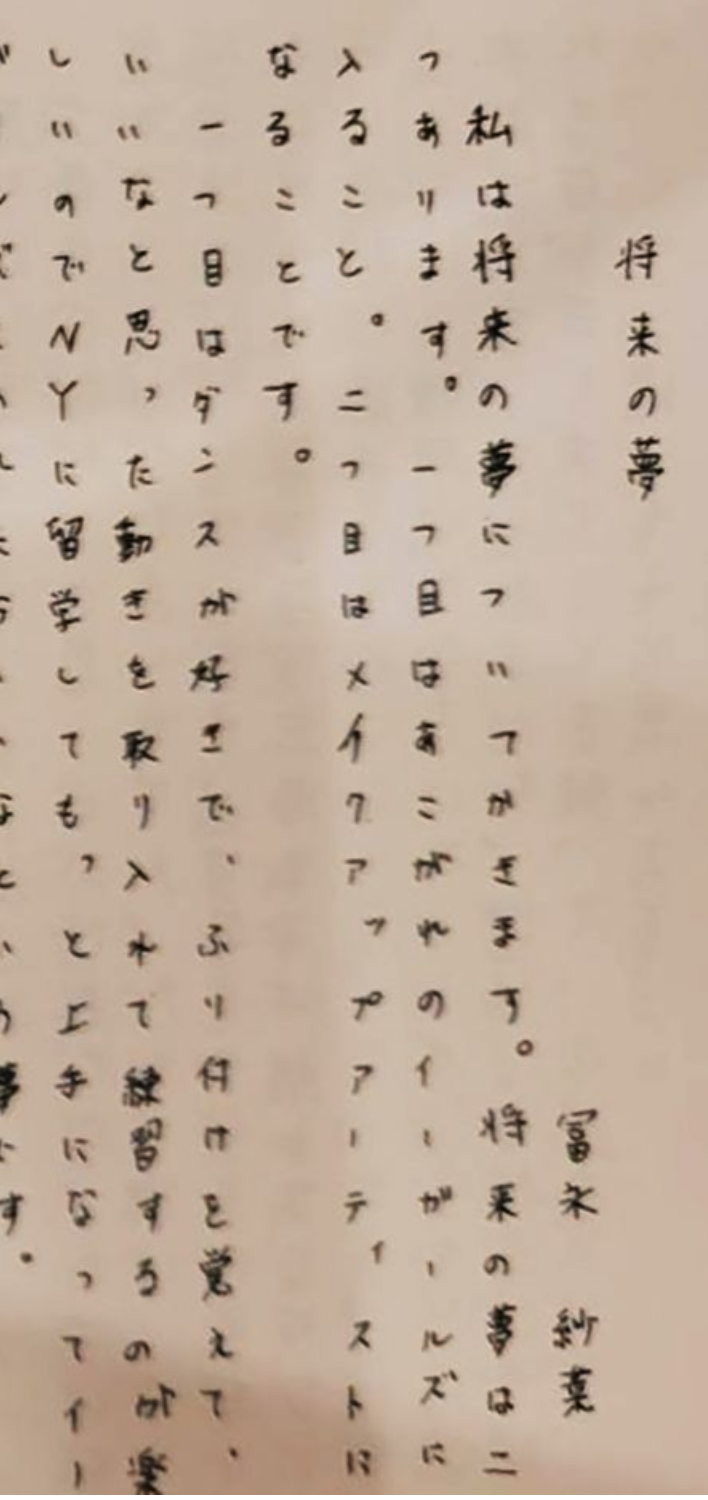 将来の夢
冨永 紗菜
私は将来の夢についてかきます。将来の夢は二
つあります。一つ目はあこがれのイーガールズに
入ること。二つ目はメイクアップアーティストに
なることです。
一つ目はダンスが好きで、ふり付けを覚えて、
いいなと思った動きを取り入れて練習するのが楽
しいのでNYに留学してもっと上手になってイー